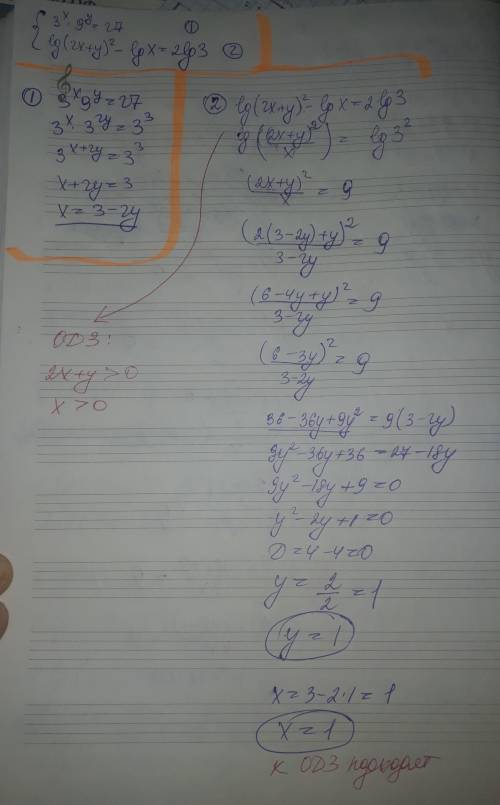 3ˣ · 9ʸ = 27 ①
lg(2x+y)² - lgx = 2lg3 ②
① 3ˣ9ʸ = 27
3ˣ · 3²ʸ = 3³
3ˣ⁺²ʸ = 3³
x+2y = 3
x = 3-2y
② lg(2x+y)² - lgx = 2lg3
lg((2x+y)²/x) = lg3²
(2x+y)²/x = 9
(2(3-2y)+y)²/3-2y = 9
(6-4y+y)²/3-2y = 9
(6-3y)²/3-2y = 9
36-36y+9y² = 9(3-2y)
9y²-36y+36 = 27-18y
9y²-18y+9=0
y²-2y+1=0
D=4-4=0
y = 2/2 = 1
y = 1
x = 3-2·1 = 1
x = 1
к ОДЗ подходят
ОДЗ:
2x+y>0
x>0